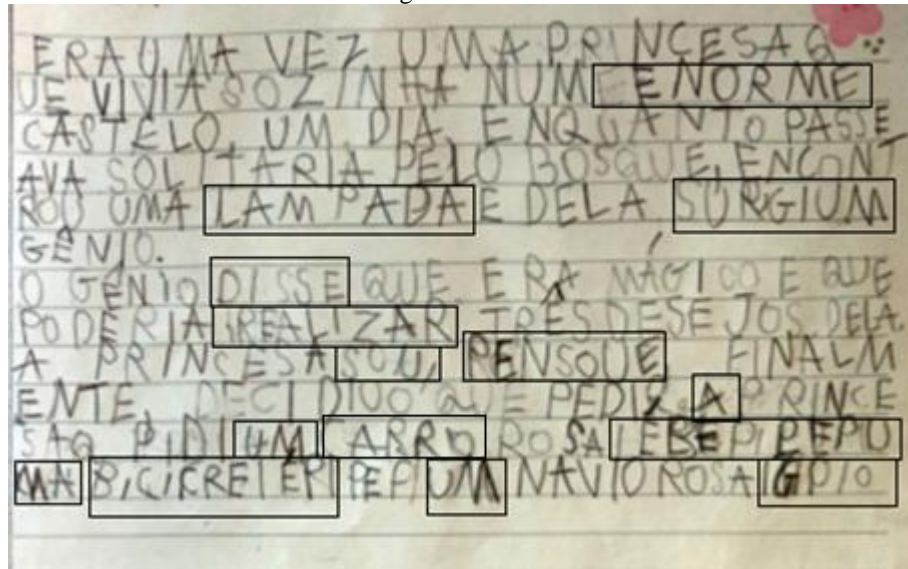 ERA UMA VEZ UMA PRINCESA Q
UE VIVIA SOZINHA NUM ENORME
CASTELO, UM DIA, ENQUANTO PASSE
AVA SOLITARIA PELO BOSQUE, ENCONT
ROU UMA LAMPADA E DELA SURGIUM
GÊNIO.
O GÊNIO DISSE QUE ERA MÁGICO E QUE
PODERIA REALIZAR TRÊS DESEJOS DELA.
A PRINCESA PENSOUE FINALM
ENTE, DECIDIUO QUE PEDIR. A PRINCE
SAQ PIDIU UM CARRO ROSA
MA BICICRETE UM NAVIO ROSA